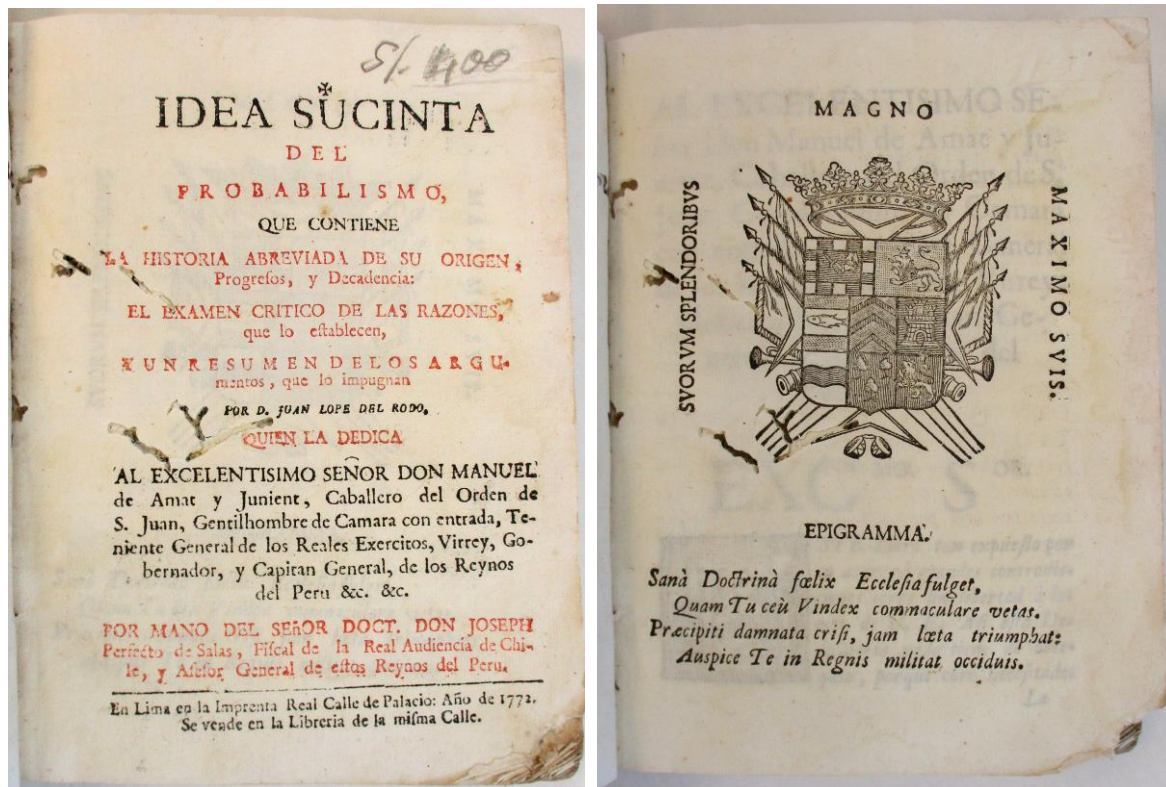 S/. 400
IDEA SUCINTA
DEL
PROBABILISMO,
QUE CONTIENE
LA HISTORIA ABREVIADA DE SU ORIGEN,
Progreſos, y Decadencia:
EL EXAMEN CRITICO DE LAS RAZONES,
que lo eſtablecen,
Y UN RESUMEN DE LOS ARGU-
mentos, que lo impugnan
POR D. JUAN LOPE DEL RODO,
QUIEN LA DEDICA
AL EXCELENTISIMO SEÑOR DON MANUEL
de Amat y Junient, Caballero del Orden de
S. Juan, Gentilhombre de Camara con entrada, Te-
niente General de los Reales Exercitos, Virrey, Go-
bernador, y Capitan General, de los Reynos
del Peru &c. &c.
POR MANO DEL SEñOR DOCT. DON JOSEPH
Perfecto de Salas, Fiſcal de la Real Audiencia de Chi-
le, y Aſeſor General de eſtos Reynos del Peru.
En Lima en la Imprenta Real Calle de Palacio: Año de 1772.
Se vende en la Libreria de la miſma Calle.
MAGNO
SVORVM SPLENDORIBVS
MAXIMO SVIS.
EPIGRAMMA.
Sanà Doctrinà fœlix Eccleſia fulget,
Quam Tu ceù Vindex commaculare vetas.
Præcipiti damnata criſi, jam læta triumphat:
Auſpice Te in Regnis militat occiduis.